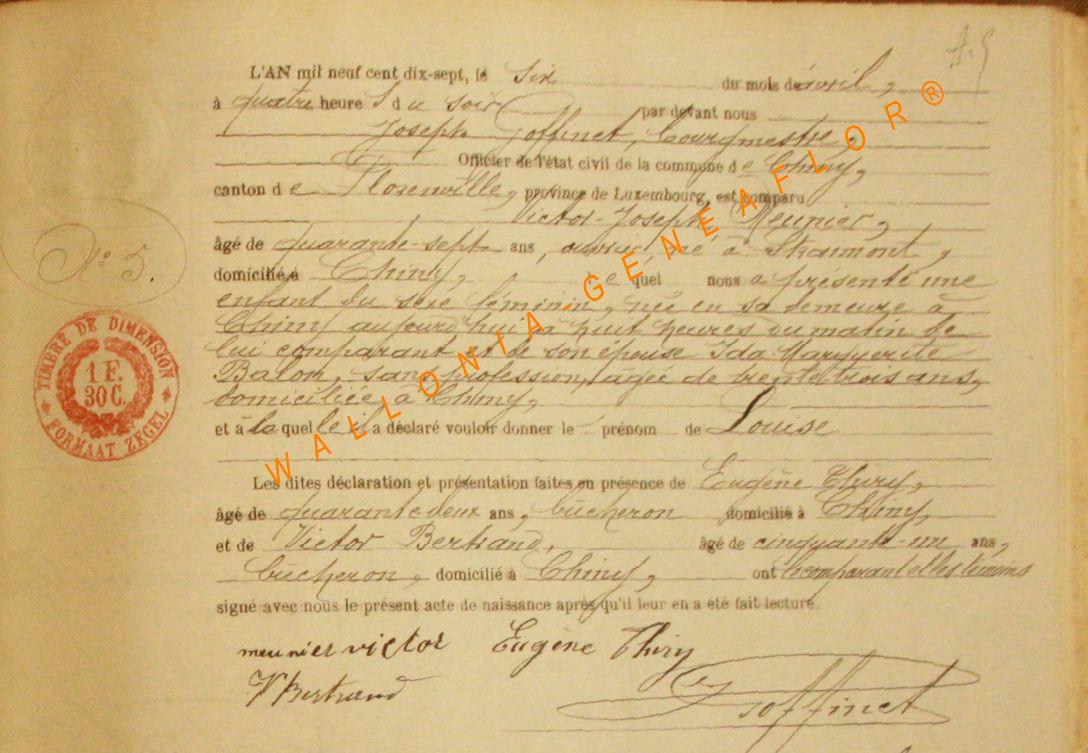 L'AN mil neuf cent dix-sept, le six du mois d'avril,
à quatre heure s du soir par devant nous
Joseph Goffinet, bourgmestre,
Officier de l'état civil de la commune de Chiny,
canton de Florenville, province de Luxembourg, est comparu
Victor-Joseph Meunier,
âgé de quarante-sept ans, ouvrier, né à
domicilié à Chiny, lequel nous a présenté une
enfant du sexe féminin, née en sa demeure à
Chiny aujourd'hui à huit heures du matin de
lui comparant et de son épouse Ida Marguerite
sans profession, âgée de trente trois ans,
domiciliée à Chiny,
et à la quelle il a déclaré vouloir donner le prénom de Louise
Les dites déclaration et présentation faites en présence de Eugène Thiry,
âgé de quarante deux ans, bûcheron domicilié à Chiny,
et de Victor Bertrand, âgé de cinquante-un ans,
bûcheron, domicilié à Chiny, ont le comparant et les témoins
signé avec nous le présent acte de naissance après qu'il leur en a été fait lecture.
meunier victor Eugène Thiry
V Bertrand
J Goffinet
N° 5.
TIMBRE DE DIMENSION
1 F.
30 C.
FORMAAT ZEGEL
WALLONIA GENEAFLOR ®